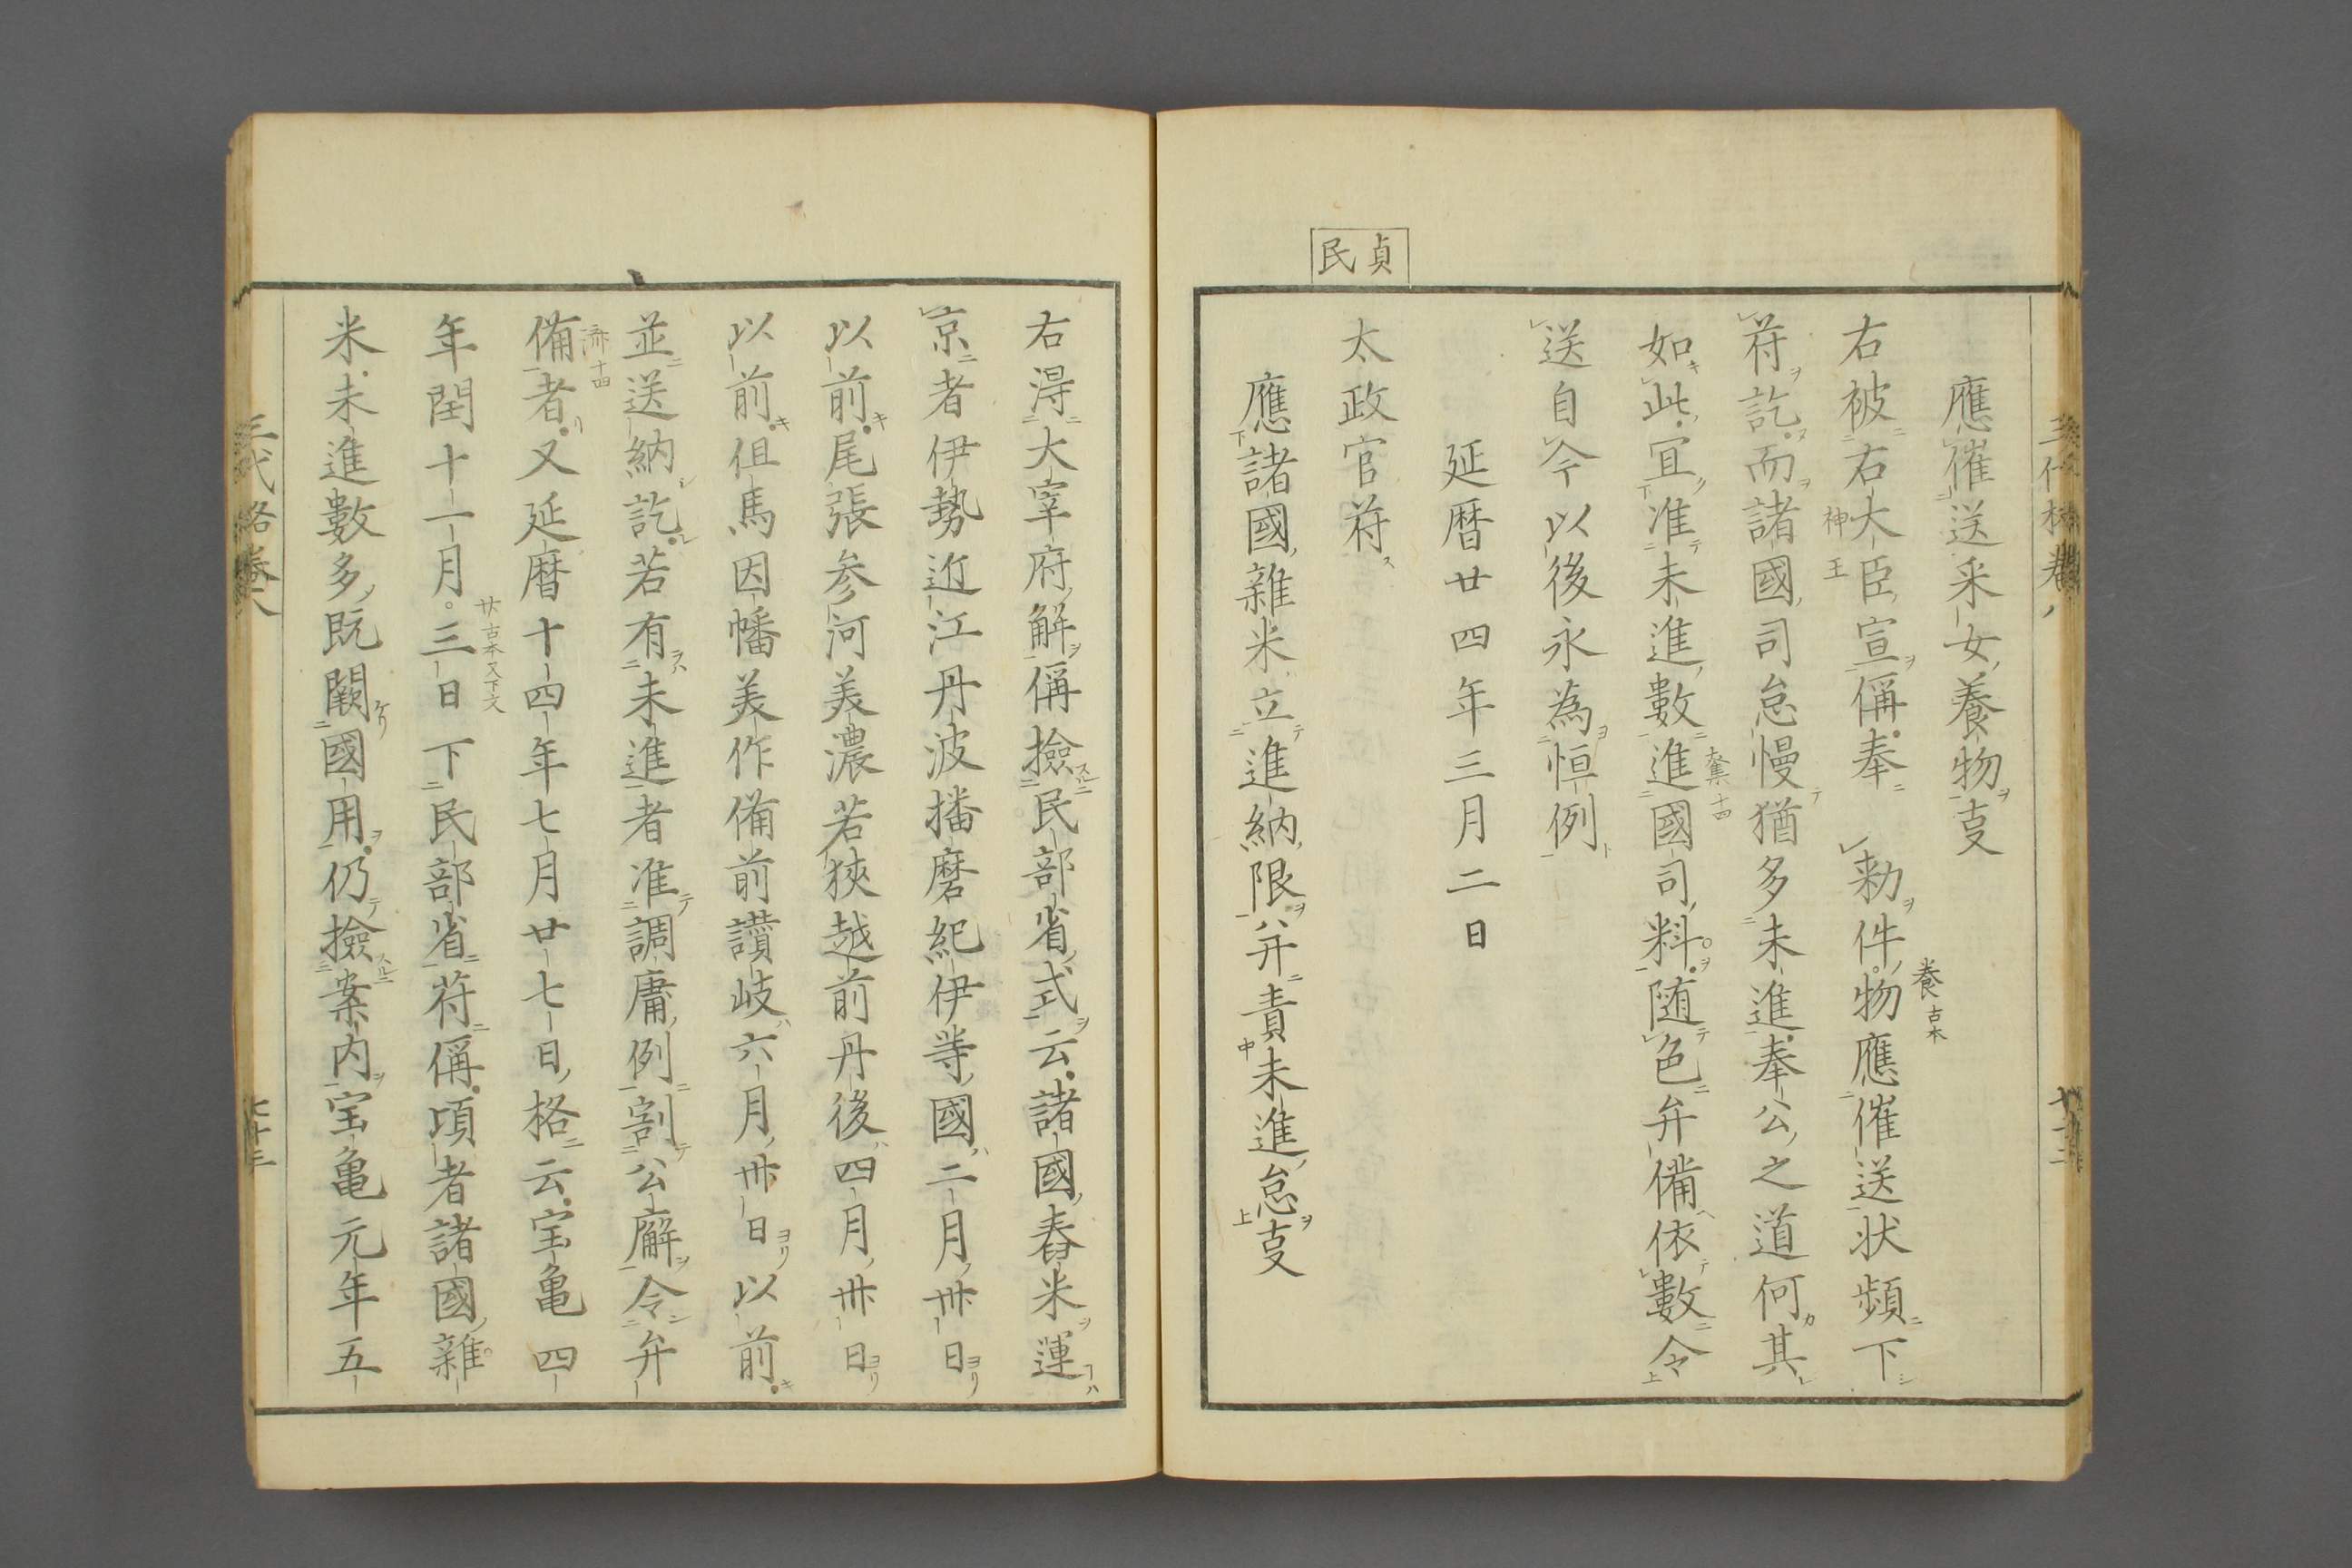 應催送采女養物㕝
右被右大臣宣偁奉 勅件物應催送状頻下
神王
養古本
符訖而諸國司怠慢猶多未進奉公之道何其
如此宜准未進數進國司料随色弁備依數令
送自今以後永為恒例
延暦廿四年三月二日
貞民
太政官符
應諸國雜米立進納限并責未進怠㕝
右淂大宰府解偁撿民部省式云諸國舂米運
京者伊勢近江丹波播磨紀伊等國二月卅日
以前尾張参河美濃若狹越前丹後四月卅日
以前但馬因幡美作備前讃岐六月卅日以前
並送納訖若有未進者准調庸例割公廨令弁
備者又延暦十四年七月廿七日格云宝亀四
済十四
年閏十一月三日下民部省符偁頃者諸國雜
廿古本又下文
米未進數多既闕國用仍撿案内宝亀元年五